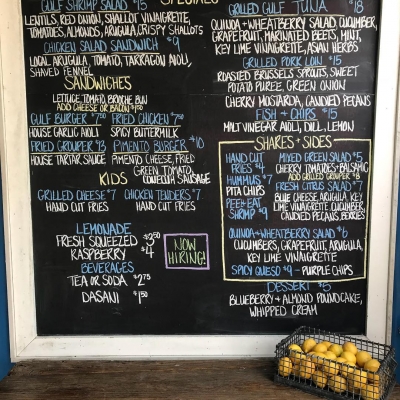 SPECIALS
GULF SHRIMP SALAD $15
LENTILS, RED ONION, SHALLOT VINAIGRETTE,
TOMATOES, ALMONDS, ARUGULA, CRISPY SHALLOTS
CHICKEN SALAD SANDWICH $9
LOCAL ARUGULA, TOMATO, TARRAGON AIOLI,
SHAVED FENNEL
SANDWICHES
LETTUCE, TOMATO, BRIOCHE BUN
ADD CHEESE OR BACON
GULF BURGER $7.50 FRIED CHICKEN $7.50
HOUSE GARLIC AIOLI SPICY BUTTERMILK
FRIED GROUPER $13 PIMENTO BURGER $10
HOUSE TARTAR SAUCE PIMENTO CHEESE, FRIED
GREEN TOMATO,
CONECUH SAUSAGE
KIDS
GRILLED CHEESE $7 CHICKEN TENDERS $7
HAND CUT FRIES HAND CUT FRIES
LEMONADE
FRESH SQUEEZED $3.50
RASPBERRY $4
BEVERAGES
TEA OR SODA $2.75
DASANI $1.50
NOW
HIRING!
GRILLED GULF TUNA $18
QUINOA + WHEATBERRY SALAD, CUCUMBER,
GRAPEFRUIT, MARINATED BEETS, MINT,
KEY LIME VINAIGRETTE, ASIAN HERBS
GRILLED PORK LOIN $15
ROASTED BRUSSELS SPROUTS, SWEET
POTATO PUREE, GREEN ONION
CHERRY MOSTARDA, CANDIED PECANS
FISH + CHIPS $15
MALT VINEGAR AIOLI, DILL, LEMON
SHARES + SIDES
HAND CUT
FRIES $4
HUMMUS $7
PITA CHIPS
PEEL + EAT
SHRIMP $9
MIXED GREEN SALAD $5
CHERRY TOMATOES + BALSAMIC
ADD GRILLED GROUPER $8
FRESH CITRUS SALAD $7
BLUE CHEESE, ARUGULA, KEY
LIME VINAIGRETTE, CUCUMBER,
CANDIED PECANS, BERRIES
QUINOA + WHEATBERRY SALAD $6
CUCUMBERS, GRAPEFRUIT, ARUGULA,
KEY LIME VINAIGRETTE
SPICY QUESO $9 - PURPLE CHIPS
DESSERT $5
BLUEBERRY + ALMOND POUNDCAKE,
WHIPPED CREAM